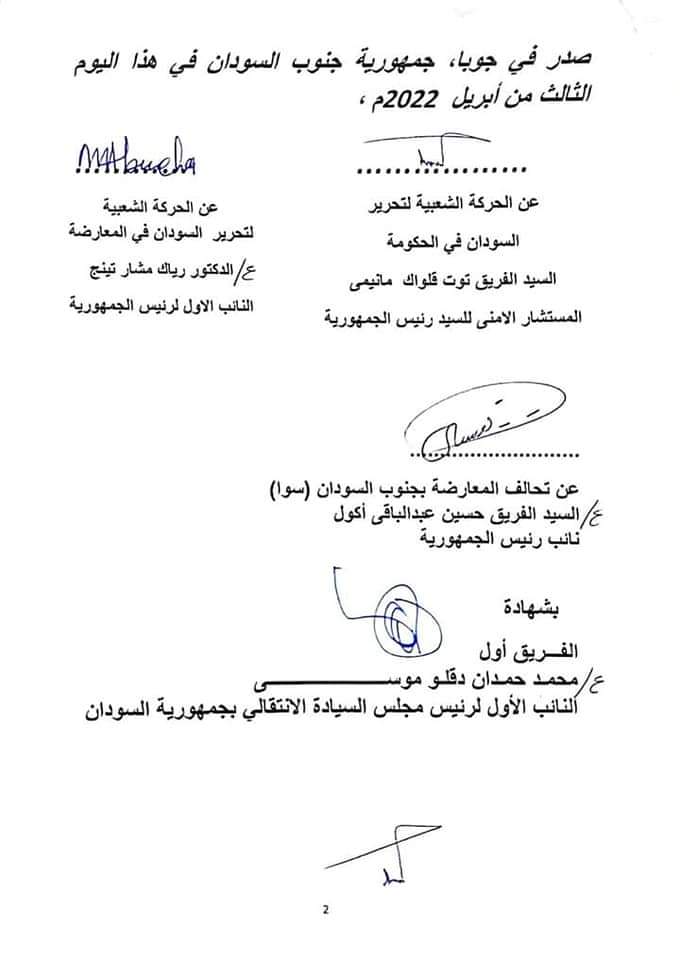 صدر في جوبا، جمهورية جنوب السودان في هذا اليوم
الثالث من أبريل 2022م ،
عن الحركة الشعبية لتحرير
السودان في الحكومة
السيد الفريق توت قلواك مانيمى
المستشار الامنى للسيد رئيس الجمهورية
عن الحركة الشعبية
لتحرير السودان في المعارضة
ع/الدكتور رياك مشار تينج
النائب الاول لرئيس الجمهورية
عن تحالف المعارضة بجنوب السودان (سوا)
ع/السيد الفريق حسين عبدالباقى أكول
نائب رئيس الجمهورية
بشهادة
الفـــريق أول
ع/محمـد حمـدان دقلـو موســـــــــــــــى
النائب الأول لرئيس مجلس السيادة الانتقالي بجمهورية السودان
2